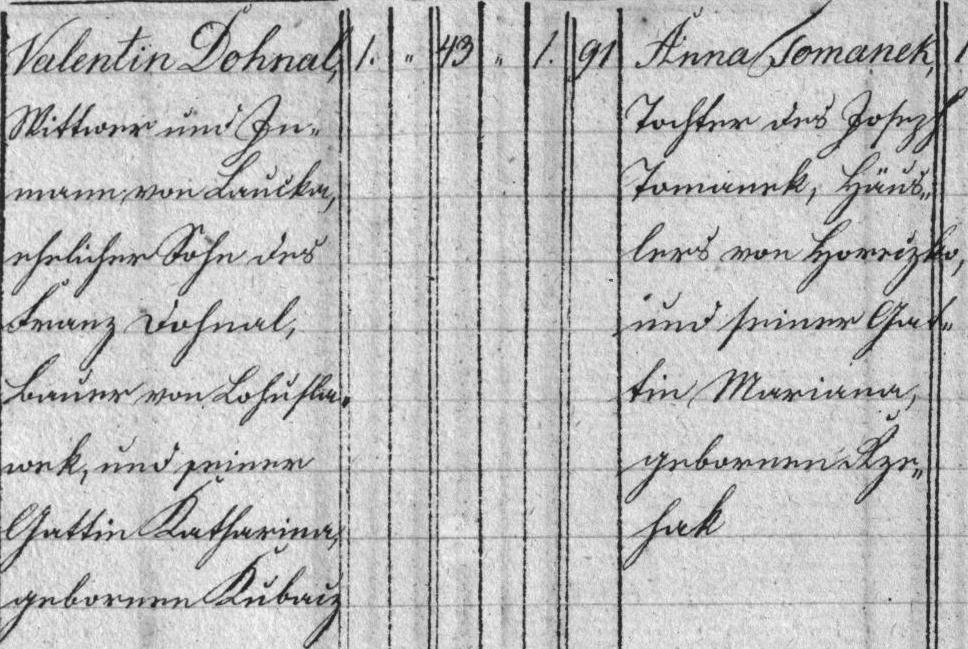 Valentin Dohnal, 1. " 43 " 1. 91 Anna Tomanek, 1
Wittwer und In-
mann von Laucka,
ehelicher Sohn des
Franz Dohnal,
Bauer von Bohusla-
wek, und seiner
Gattin Katharina,
gebornen Kubaiz
Tochter des Joseph
Tomanek, Häus-
lers von Horeczko,
und seiner Gat-
tin Mariana,
gebornen Rze-
hak